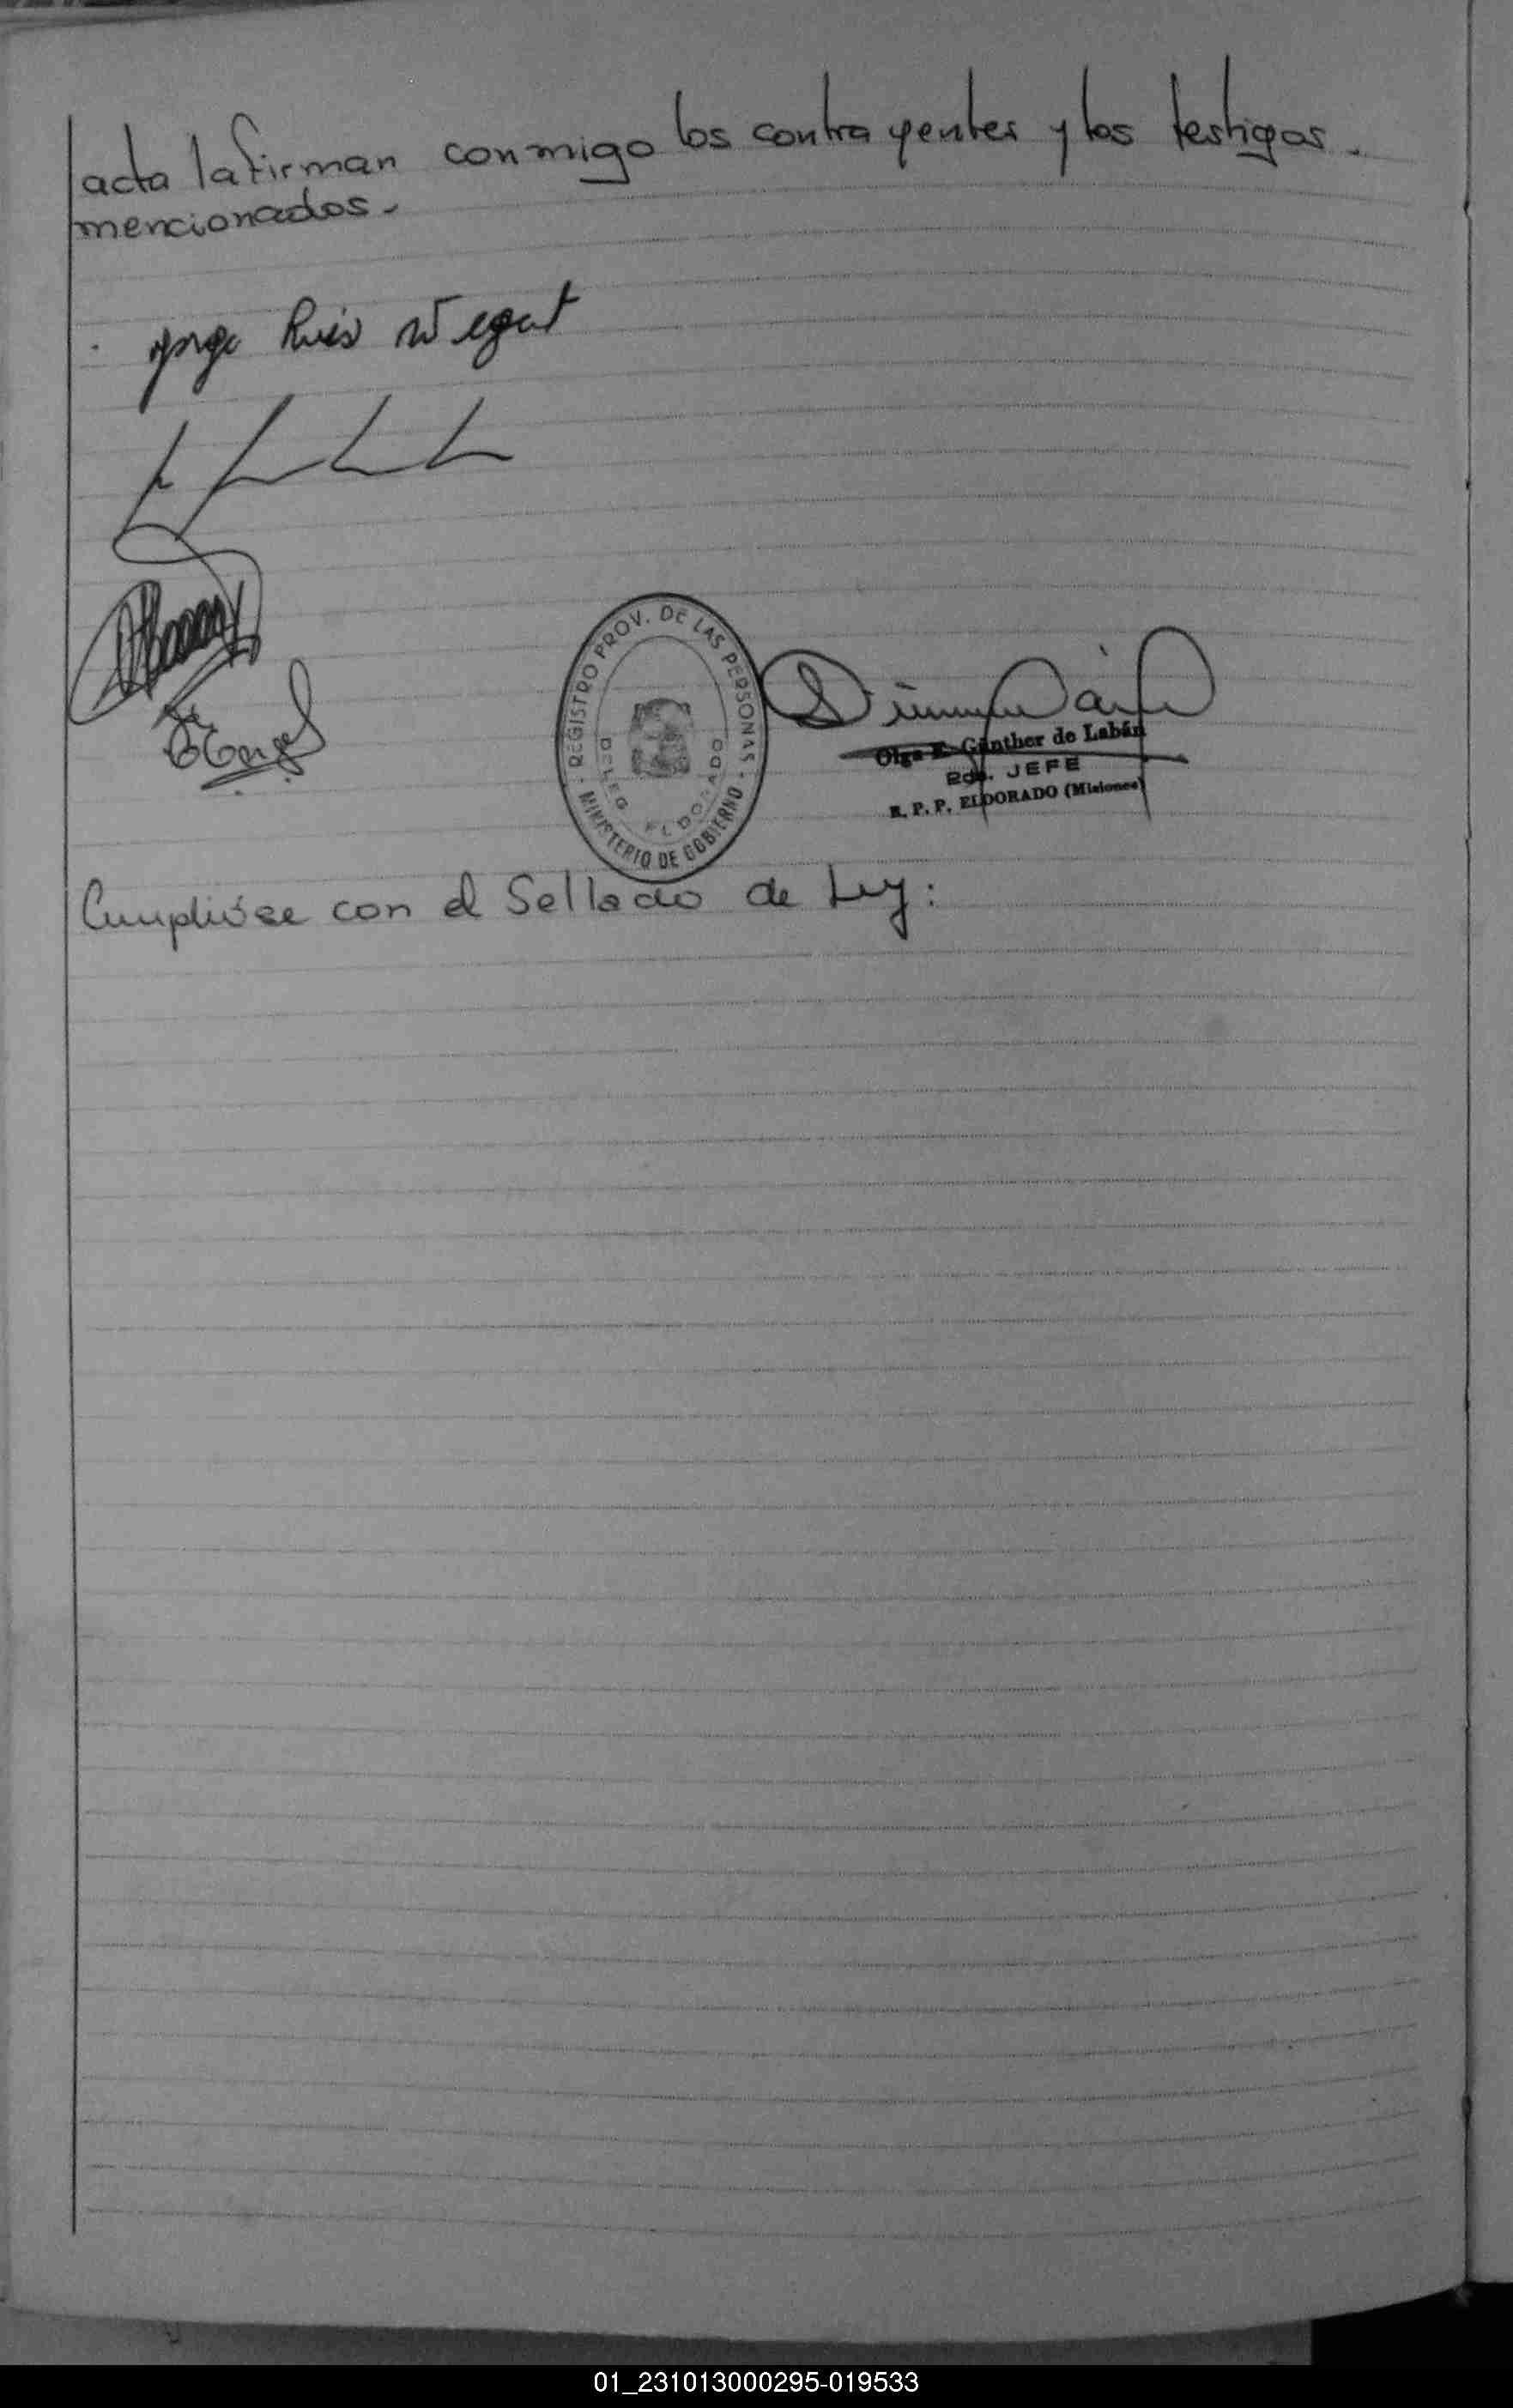 acta la firman conmigo los contrayentes y los testigos.
mencionados.
Jorge Luis Wegert
REGISTRO PROV. DE LAS PERSONAS
MINISTERIO DE GOBIERNO
DELEG ELDORADO
Olga E. Günther de Labán
2da. JEFE
R. P. P. ELDORADO (Misiones)
Cumplióse con el Sellado de Ley:
01_231013000295-019533